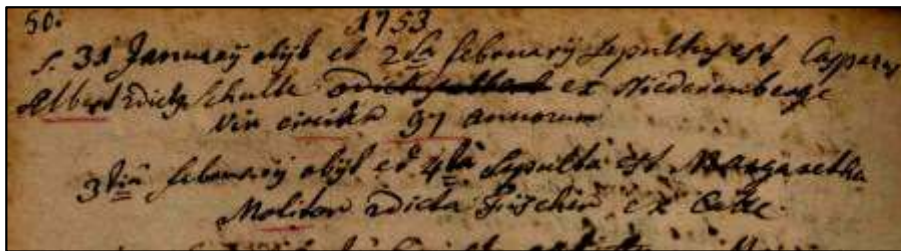 50. 1753
s. 31 January obijt et 2da february sepultus est Casparus
Albert dictus Schulte ex Niederenberge
Vir circiter 97 annorum
3tia february obijt et 4ta Sepulta est Margaretha
Moliton dicta Fischin ex